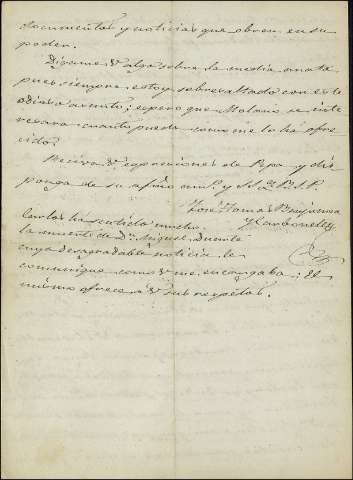 documentos y noticias que obren en su
poder.
Digame V. algo sobre la media anata
pues siempre estoy sobresaltado con este
odioso asunto; espero que Molano se inte
resara cuanto pueda como me lo ha ofre
cido.
Reciva V. espresiones de Pepa y dis
ponga de su afmo am.º y S.S. Q. B. S. M.
José Tomas
y Carbonell
Carlos ha sentido mucho
la muerte de Dn. Miguel
cuya desagradable noticia le
comunique como V. me encargaba; el
mismo ofrece á V. sus respetos.